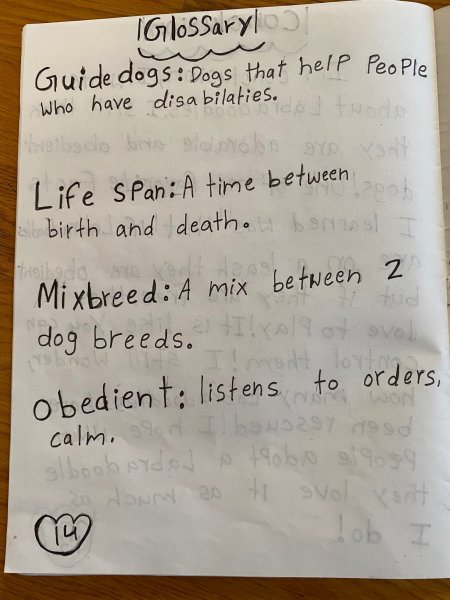 Glossary
Guide dogs: Dogs that help People
who have disabilaties.
Life span: A time between
birth and death.
Mixbreed: A mix between 2
dog breeds.
obedient: listens to orders,
calm.
14